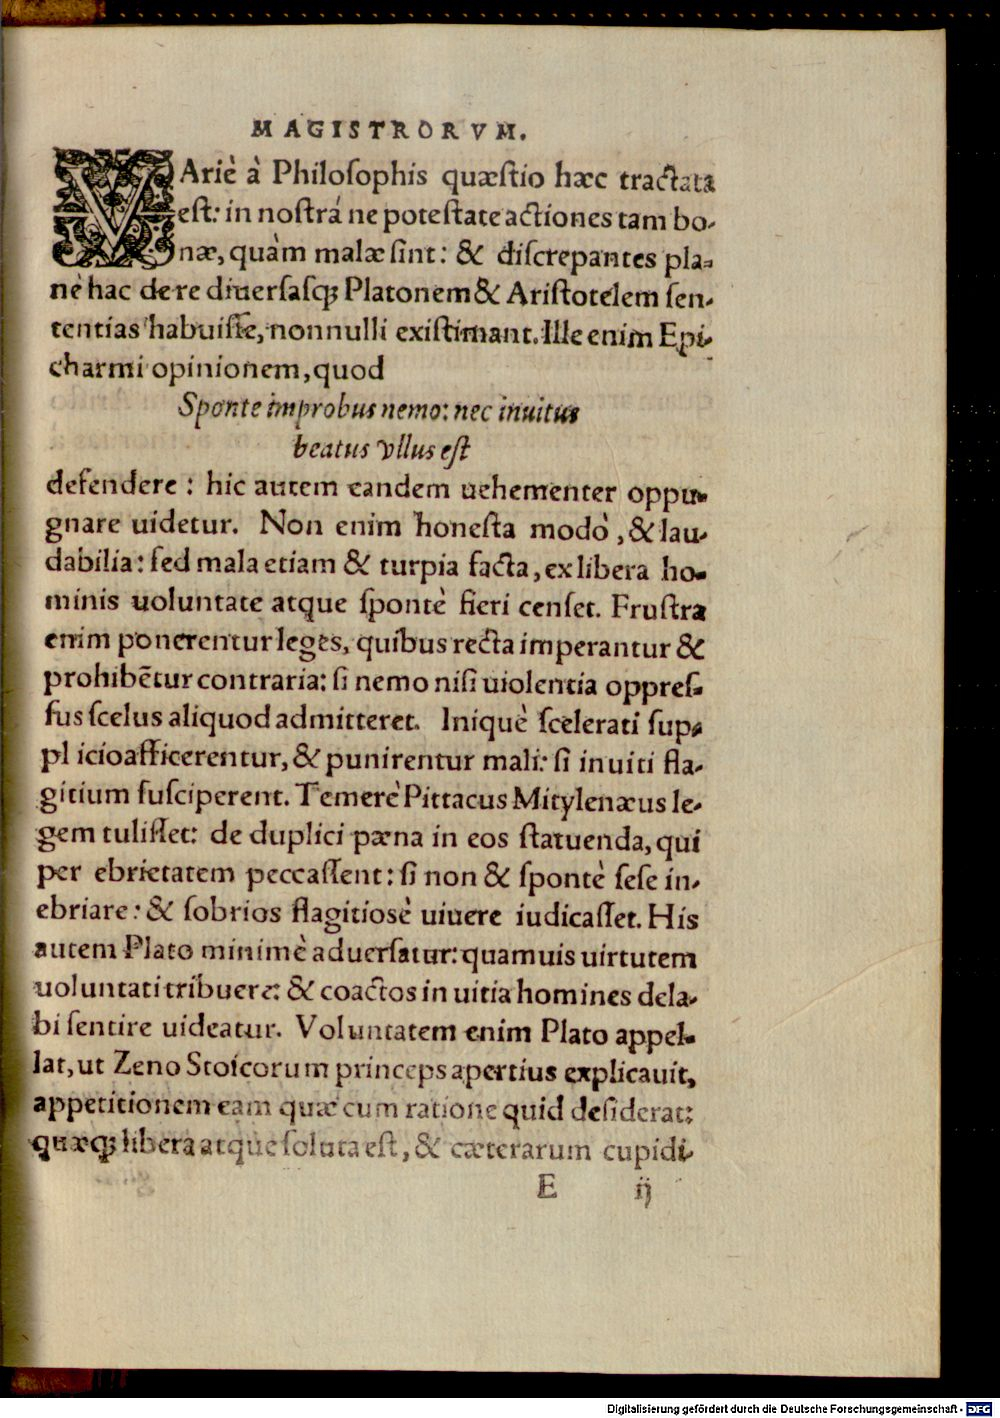 MAGISTRORVM.
VAriè à Philoſophis quæſtio hæc tractata
eſt: in noſtrá ne poteſtate actiones tam bo-
næ, quàm malæ ſint: & diſcrepantes pla-
nè hac de re diuerſasq; Platonem & Ariſtotelem ſen-
tentias habuiſſe, nonnulli exiſtimant. Ille enim Epi-
charmi opinionem, quod
Sponte improbus nemo: nec inuitus
beatus vllus eſt
defendere: hic autem eandem uehementer oppu-
gnare uidetur. Non enim honeſta modò, & lau-
dabilia: ſed mala etiam & turpia facta, ex libera ho-
minis uoluntate atque ſpontè fieri cenſet. Fruſtra
enim ponerentur leges, quibus recta imperantur &
prohibētur contraria: ſi nemo niſi uiolentia oppreſ-
ſus ſcelus aliquod admitteret. Iniquè ſcelerati ſup-
pl icio afficerentur, & punirentur mali: ſi inuiti fla-
gitium ſuſciperent. Temerè Pittacus Mitylenæus le-
gem tuliſſet: de duplici pæna in eos ſtatuenda, qui
per ebrietatem peccaſſent: ſi non & ſpontè ſeſe in-
ebriare: & ſobrios flagitiosè uiuere iudicaſſet. His
autem Plato minimè aduerſatur: quamuis uirtutem
uoluntati tribuere: & coactos in uitia homines dela-
bi ſentire uideatur. Voluntatem enim Plato appel-
lat, ut Zeno Stoicorum princeps apertius explicauit,
appetitionem eam quæ cum ratione quid deſiderat:
quæq; libera atque ſoluta eſt, & cæterarum cupidi-
E ij
Digitalisierung gefördert durch die Deutsche Forschungsgemeinschaft - DFG